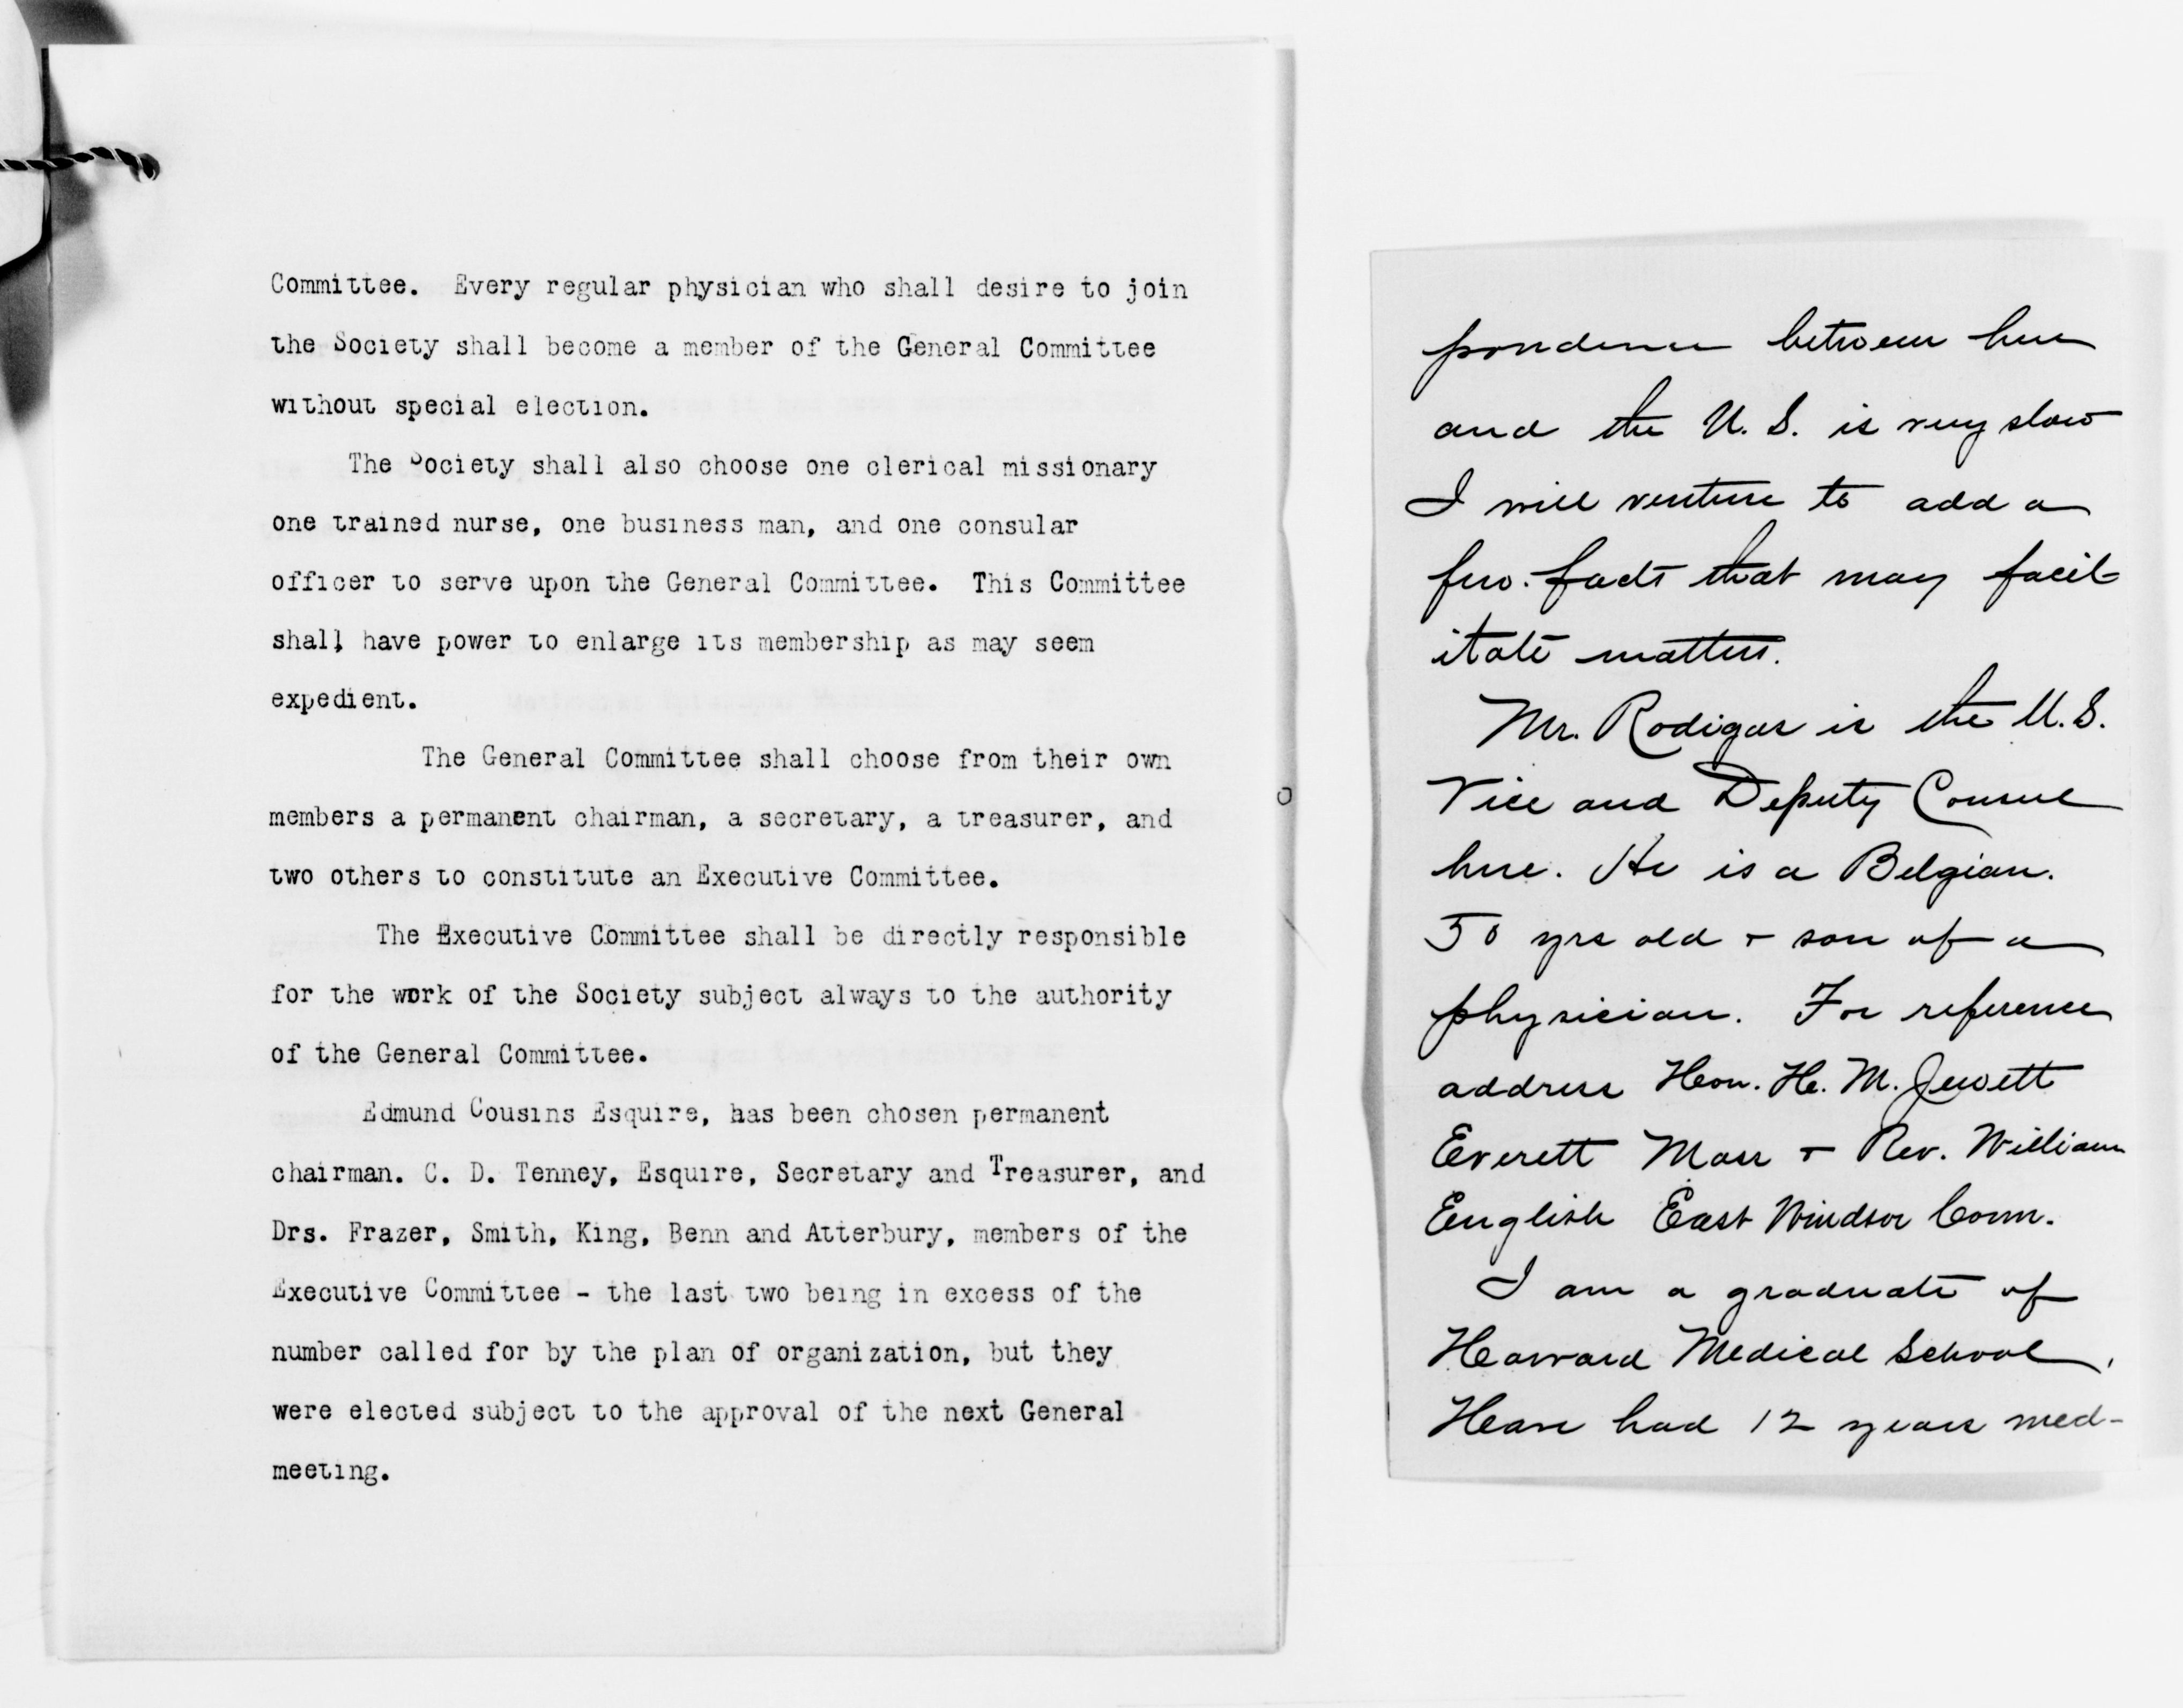 Committee. Every regular physician who shall desire to join
the Society shall become a member of the General Committee
without special election.
The Society shall also choose one clerical missionary
one trained nurse, one business man, and one consular
officer to serve upon the General Committee. This Committee
shall have power to enlarge its membership as may seem
expedient.
The General Committee shall choose from their own
members a permanent chairman, a secretary, a treasurer, and
two others to constitute an Executive Committee.
The Executive Committee shall be directly responsible
for the work of the Society subject always to the authority
of the General Committee.
Edmund Cousins Esquire, has been chosen permanent
chairman. C. D. Tenney, Esquire, Secretary and Treasurer, and
Drs. Frazer, Smith, King, Benn and Atterbury, members of the
Executive Committee - the last two being in excess of the
number called for by the plan of organization, but they
were elected subject to the approval of the next General
meeting.
pondence between here
and the U. S. is very slow
I will venture to add a
few facts that may facil-
itate matters.
Mr. Rodigas is the U.S.
Vice and Deputy Consul
here. He is a Belgian.
50 yrs old + son of a
physician. For reference
address Hon. H. M. Jewett
Everett Mass + Rev. William
English East Windsor Conn.
I am a graduate of
Harvard Medical School,
Have had 12 years med-